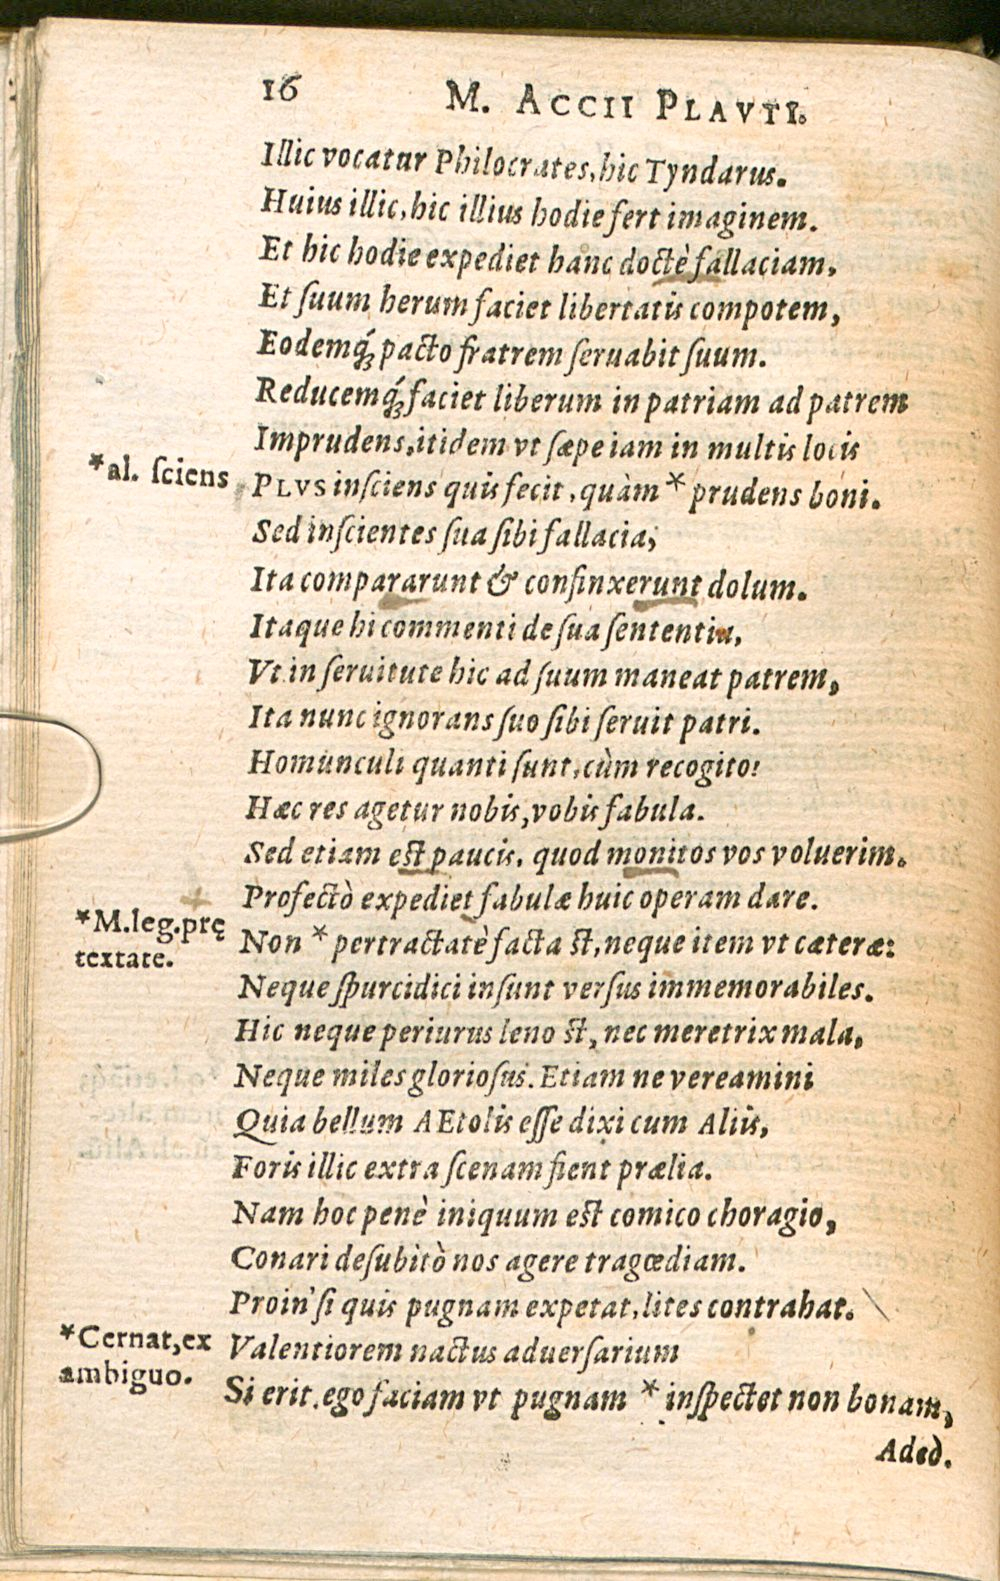 16 M. ACCII PLAVTI.
Illic vocatur Philocrates, hic Tyndarus.
Huius illic, hic illius hodie fert imaginem.
Et hic hodie expediet hanc doctè fallaciam,
Et ſuum herum faciet libertatis compotem,
Eodemq́ꝫ pacto fratrem ſeruabit ſuum.
Reducemq́ꝫ faciet liberum in patriam ad patrem
Imprudens, itidem vt ſæpe iam in multis locis
*al. ſciens PLVS inſciens quis fecit, quàm * prudens boni.
Sed inſcientes ſua ſibi fallacia,
Ita compararunt & confinxerunt dolum.
Itaque hi commenti de ſua ſententia,
Vt in ſeruitute hic ad ſuum maneat patrem,
Ita nunc ignorans ſuo ſibi ſeruit patri.
Homunculi quanti ſunt, cùm recogito!
Hæc res agetur nobis, vobis fabula.
Sed etiam eſt paucis, quod monitos vos voluerim.
Profectò expediet fabulæ huic operam dare.
*M.leg.prę
textate.
Non * pertractatè facta ſt, neque item vt cæteræ:
Neque ſpurcidici inſunt verſus immemorabiles.
Hic neque periurus leno ſt, nec meretrix mala,
Neque miles glorioſus. Etiam ne vereamini
Quia bellum AEtolis eſſe dixi cum Aliis,
Foris illic extra ſcenam fient prælia.
Nam hoc penè iniquum eſt comico choragio,
Conari deſubitò nos agere tragœdiam.
Proin' ſi quis pugnam expetat, lites contrahat.
*Cernat, ex
ambiguo.
Valentiorem nactus aduerſarium
Si erit, ego faciam vt pugnam * inſpectet non bonam,
Adeò.